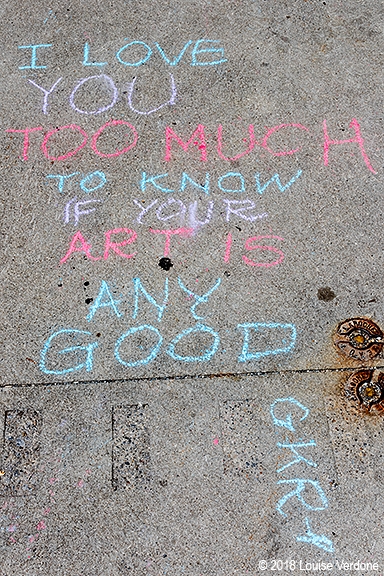 I LOVE
YOU
TOO MUCH
TO KNOW
IF YOUR
ART IS
ANY
GOOD
GKRY
© 2018 Louise Verdone